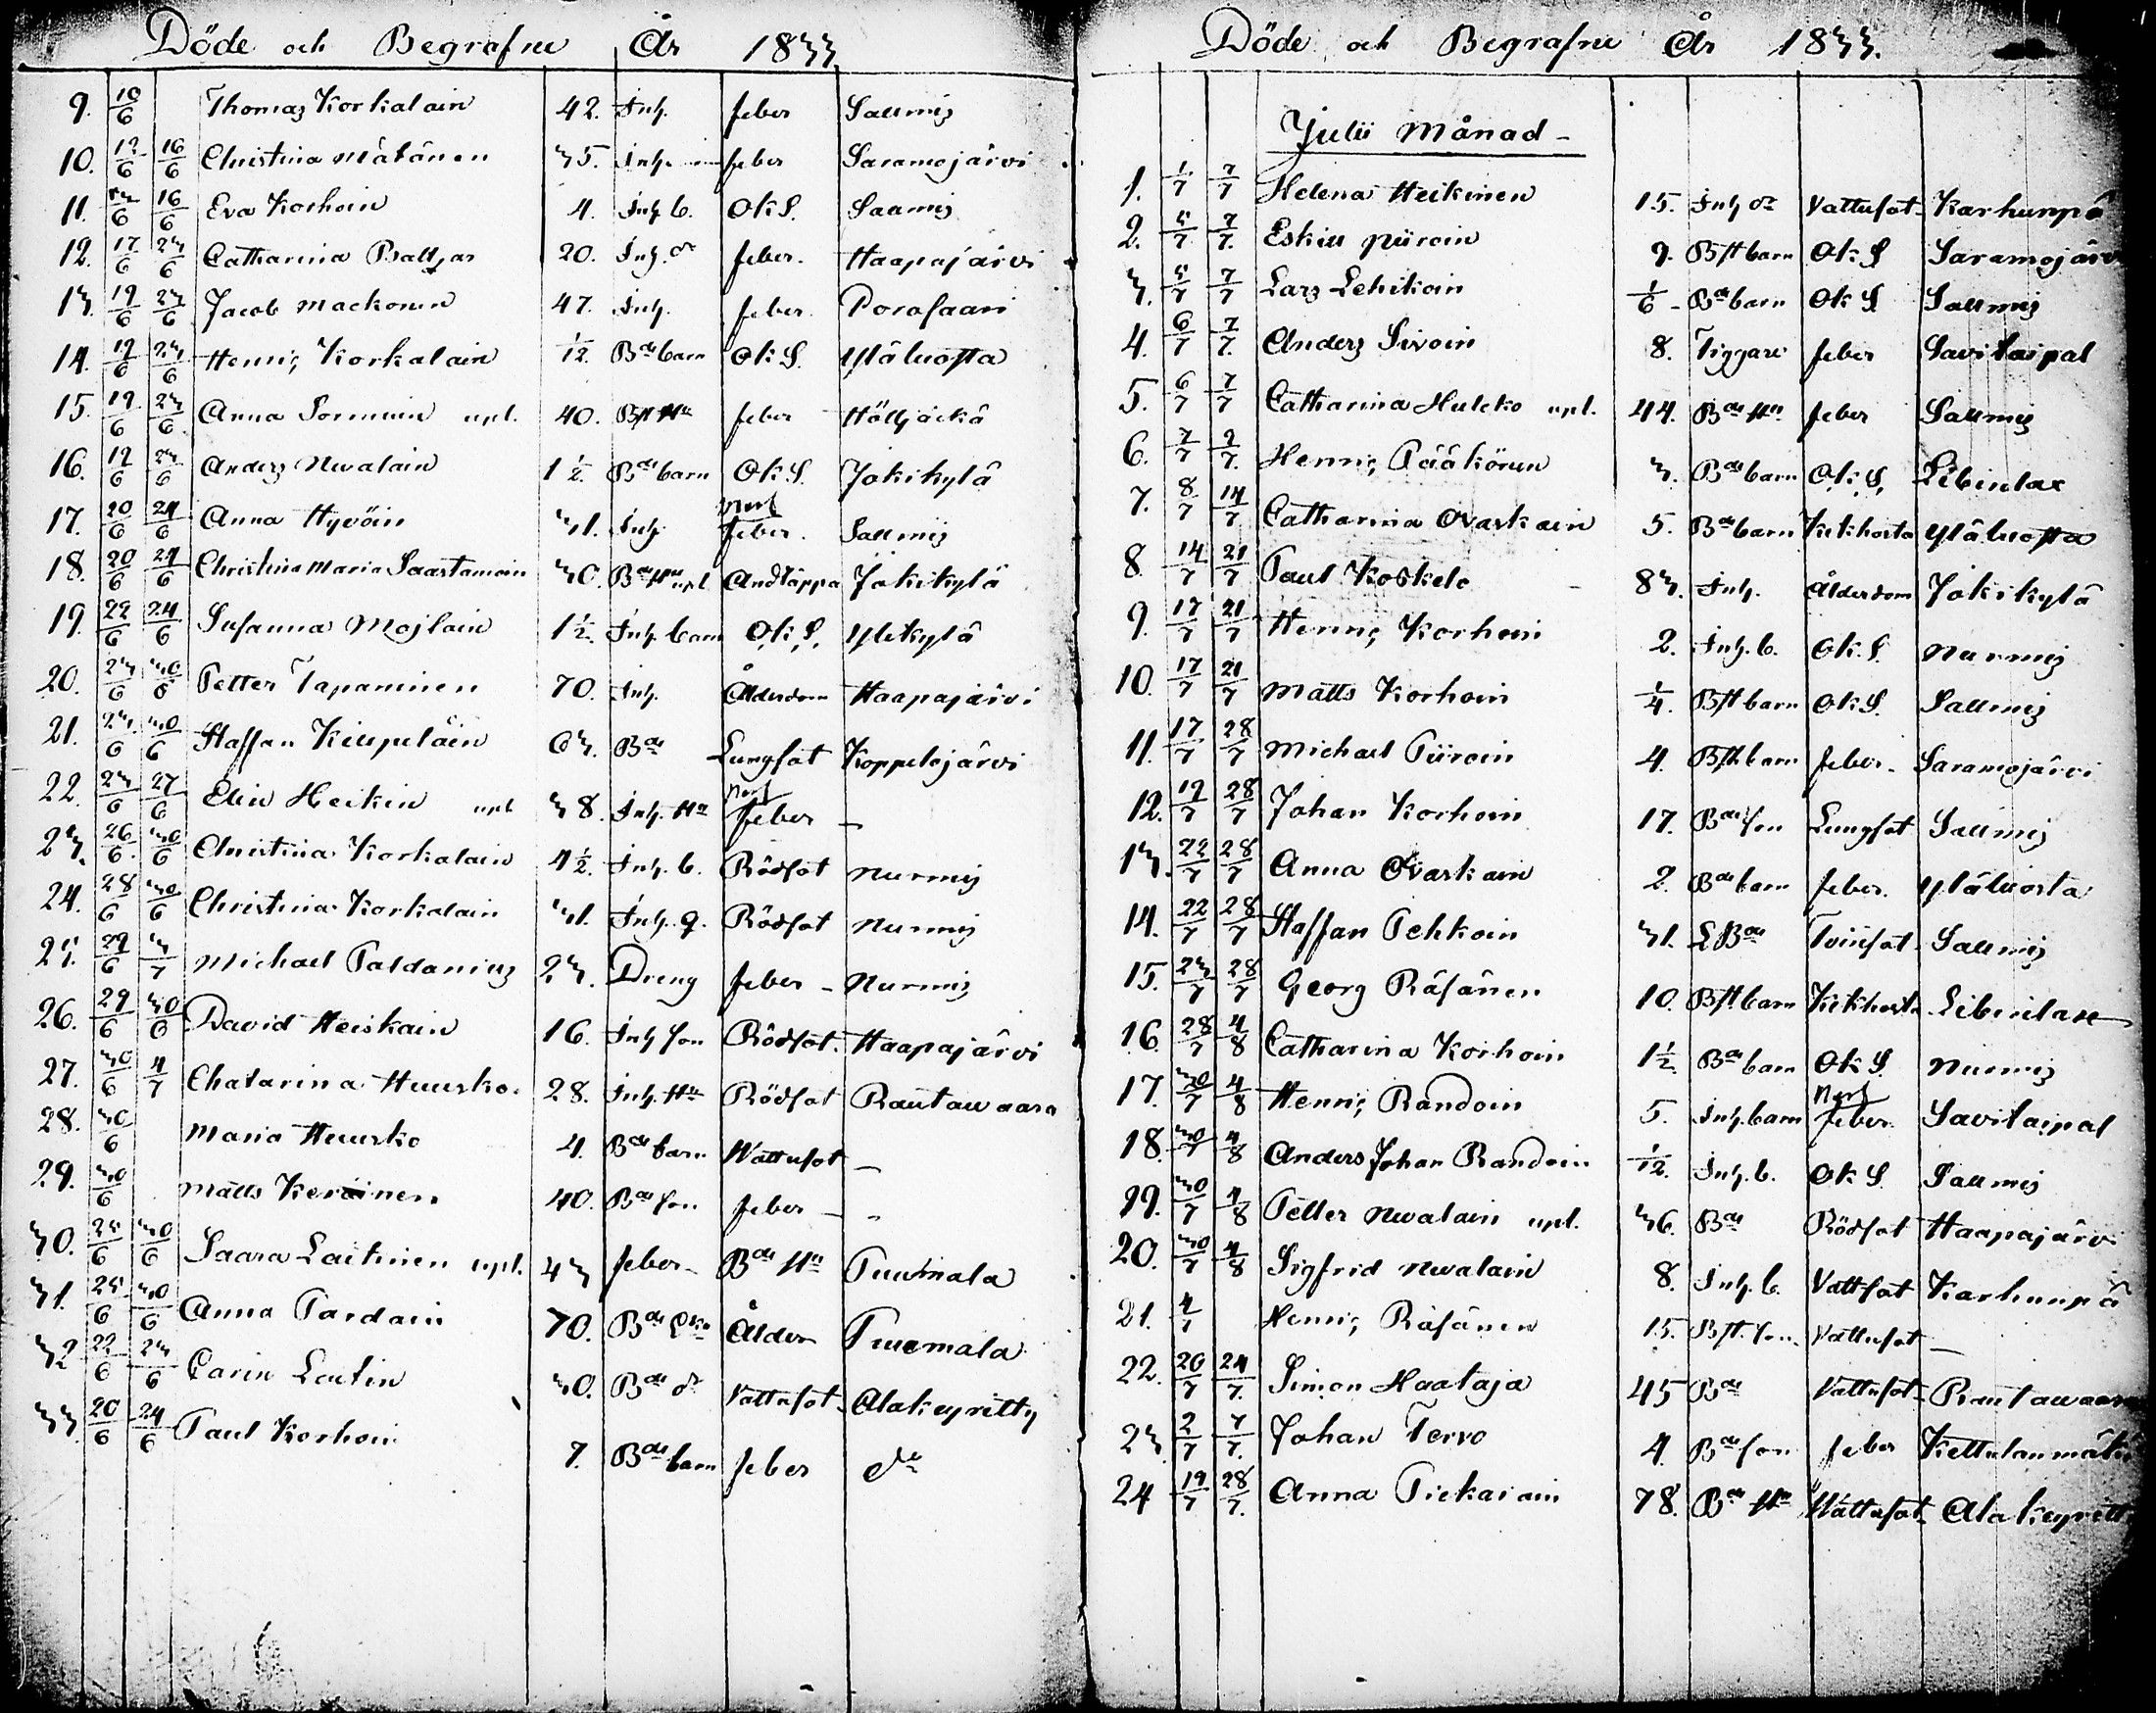 Döde och Begrafne År 1833
9. 10/6 Thomas Korkalain 42. Inh. feber Saumis
10. 12/6 16/6 Christina Mätänen 35. Inh. feber Saramojärvi
11. 13/6 16/6 Eva Korhoin 4. Inh. b. Ok S. Saamis
12. 17/6 23/6 Catharina Baltzar 20. Inh. dr feber. Haapajärvi
13. 19/6 23/6 Jacob Mackonen 47. Inh. feber Porosaari
14. 19/6 23/6 Henric Korkalain 1/12. Bde barn Ok S. Yläluosta
15. 19/6 23/6 Anna Sormuin upl. 40. Bst Hu feber Höljäckä
16. 19/6 23/6 Anders Nevalain 1 1/2. Bde barn Ok S. Jokikylä
17. 20/6 24/6 Anna Hyvöin 31. Inh. Nerf feber. Saumis
18. 20/6 24/6 Christina Maria Saastamoin 30. Bde Hu upl Andtäppa Jokikylä
19. 22/6 24/6 Susanna Mojlain 1 1/2. Inh. barn Ok S. Ylikylä
20. 23/6 30/6 Petter Tapaninen 70. Inh. Ålderdom Haapajärvi
21. 23/6 30/6 Staffan Kiupeläin 63. Bde Lungsot Koppelojärvi
22. 23/6 27/6 Elin Heikin upl 38. Inh. Hu Nerf feber —
23. 26/6 30/6 Christina Korkalain 4 1/2. Inh. b. Rödsot Nurmis
24. 28/6 30/6 Christina Korkalain 31. Inh. q. Rödsot Nurmis
25. 29/6 3/7 Michael Paldanius 23. Dreng feber - Nurmis
26. 29/6 30/6 David Heiskain 16. Inh son Rödsot. Haapajärvi
27. 30/6 4/7 Chatarina Huusko. 28. Inh. Hu Rödsot Rautawaara
28. 30/6 Maria Huusko 4. Bde barn Wattusot —
29. 30/6 Matts Keräinen 40. Bde son feber — "
30. 25/6 30/6 Saara Laitinen upl. 43 feber- Bde Hu Puumala
31. 25/6 30/6 Anna Pardain 70. Bde Eka Ålder Puumala
32 22/6 23/6 Carin Leutin 30. Bde dr Vattusot- Alakeyritty
33. 20/6 24/6 Paul Korhoin 7. Bde barn feber do
Döde och Begrafne År 1833.
Julii Månad -
1. 1/7 7/7 Helena Heikinen 15. Inh dr Vattusot- Karhunpä
2. 5/7 7/7. Eskill Piiroin 9. Bst barn Ok S Saramojärv
3. 5/7 7/7 Lars Lehikoin 1/6 - Bde barn Ok S Saumis
4. 6/7 7/7. Anders Sivoin 8. Tiggare feber Savitaipal
5. 6/7 7/7 Catharina Hulcko upl. 44. Bde Hu feber Saumis
6. 7/7 9/7. Henric Pääkönen 3. Bde barn Ok S. Libinlax
7. 8/7 14/7 Catharina Ovaskain 5. Bde barn Kikhosta Yläluosta
8. 14/7 21/7 Paul Koskelo 83. Inh. Ålderdom Jokikylä
9. 17/7 21/7 Henric Korhoin 2. Inh. b. Ok. S. Nurmis
10. 17/7 21/7 Matts Korhoin 1/4. Bst barn Ok S. Saumis
11. 17/7 28/7 Michael Piiroin 4. Bst barn feber. Saramojärvi
12. 19/7 28/7 Johan Korhoin 17. Bde son Lungsot Saumis
13. 22/7 28/7 Anna Ovaskain 2. Bde barn feber. Yläluosta
14. 22/7 28/7 Staffan Pehkoin 31. L Bde Tvinsot Saumis
15. 23/7 28/7 Georg Räsänen 10. Bst barn Kikhosta Libinlax
16. 28/7 4/8 Catharina Korhoin 1 1/2. Bde barn Ok S. Nurmis
17. 30/7 4/8 Henric Randoin 5. Inh. barn Nerf feber. Savitaipal
18. 30/7 4/8 Anders Johan Randoin 1/12. Inh. b. Ok S. Saumis
19. 30/7 4/8 Petter Nevalain upl. 36. Bde Rödsot Haapajärvi
20. 30/7 4/8 Sigfrid Nevalain 8. Inh. b. Vattsot Karhunpä
21. 4/7 Henric Räsänen 15. Bst. son. Vattusot —
22. 20/7 24/7. Simon Haataja 45 Bde Vattusot- Rautawaara
23 2/7 7/7. Johan Tervo 4. Bde son feber Kettulanmäki
24 19/7 28/7. Anna Piekarain 78. Bde Hu Wattusot- Alakeyritt